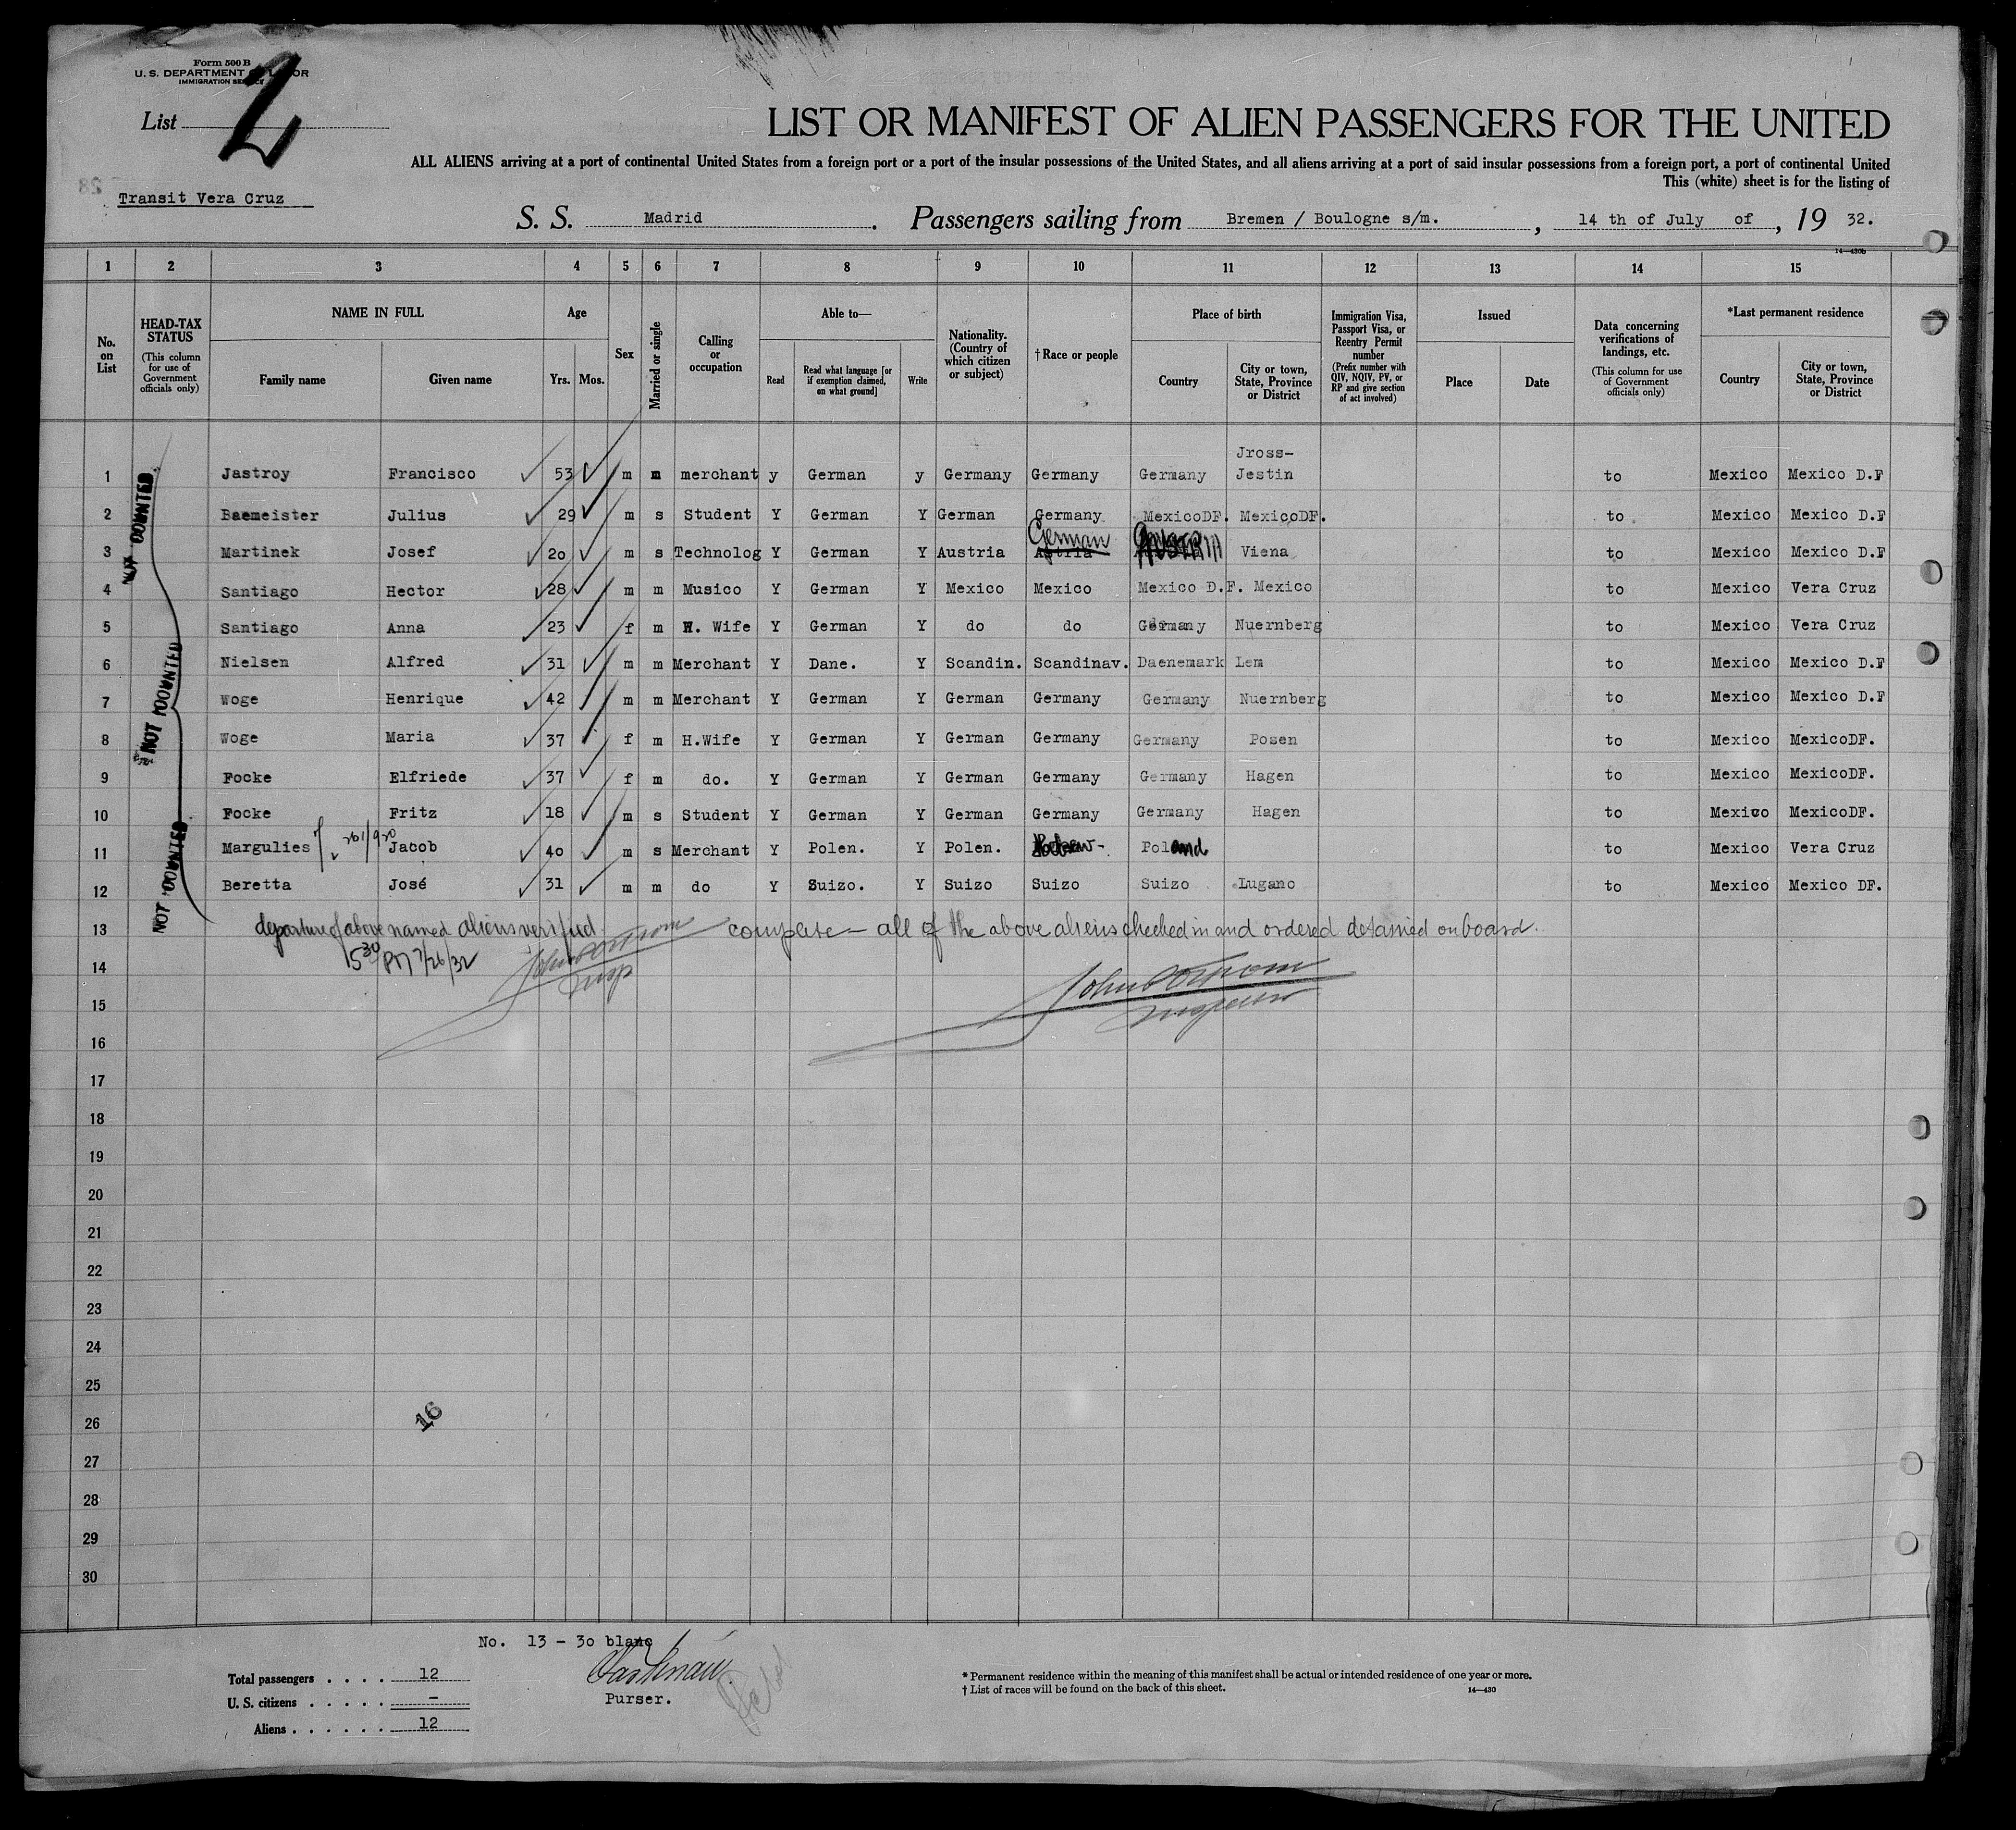 Form 500 B
U. S. DEPARTMENT OF LABOR
IMMIGRATION SERVICE
List 2
LIST OR MANIFEST OF ALIEN PASSENGERS FOR THE UNITED
ALL ALIENS arriving at a port of continental United States from a foreign port or a port of the insular possessions of the United States, and all aliens arriving at a port of said insular possessions from a foreign port, a port of continental United
This (white) sheet is for the listing of
28
Transit Vera Cruz
S. S. Madrid. Passengers sailing from Bremen / Boulogne s/m., 14 th of July of, 19 32.
14—430b
1 2 3 4 5 6 7 8 9 10 11 12 13 14 15
No. on List
HEAD-TAX STATUS (This column for use of Government officials only)
NAME IN FULL Family name Given name
Age Yrs. Mos.
Sex
Married or single
Calling or occupation
Able to— Read Read what language [or if exemption claimed, on what ground] Write
Nationality. (Country of which citizen or subject)
† Race or people
Place of birth Country City or town, State, Province or District
Immigration Visa, Passport Visa, or Reentry Permit number (Prefix number with QIV, NQIV, PV, or RP and give section of act involved)
Issued Place Date
Data concerning verifications of landings, etc. (This column for use of Government officials only)
*Last permanent residence Country City or town, State, Province or District
NOT COUNTED
NOT COUNTED
NOT COUNTED
1 Jastroy Francisco 53 m m merchant y German y Germany Germany Germany Jross-Jestin to Mexico Mexico D.F
2 Baemeister Julius 29 m s Student Y German Y German Germany MexicoDF. MexicoDF. to Mexico Mexico D.F
3 Martinek Josef 20 m s Technolog Y German Y Austria Astria German AUSTRIA Viena to Mexico Mexico D.F
4 Santiago Hector 28 m m Musico Y German Y Mexico Mexico Mexico D.F. Mexico to Mexico Vera Cruz
5 Santiago Anna 23 f m H. Wife Y German Y do do Germany Nuernberg to Mexico Vera Cruz
6 Nielsen Alfred 31 m m Merchant Y Dane. Y Scandin. Scandinav. Daenemark Lem to Mexico Mexico D.F
7 Woge Henrique 42 m m Merchant Y German Y German Germany Germany Nuernberg to Mexico Mexico D.F
8 Woge Maria 37 f m H.Wife Y German Y German Germany Germany Posen to Mexico MexicoDF.
9 Focke Elfriede 37 f m do. Y German Y German Germany Germany Hagen to Mexico MexicoDF.
10 Focke Fritz 18 m s Student Y German Y German Germany Germany Hagen to Mexico MexicoDF.
11 Margulies Jacob 40 m s Merchant Y Polen. Y Polen. Hebrew- Poland to Mexico Vera Cruz
12 Beretta José 31 m m do Y Suizo. Y Suizo Suizo Suizo Lugano to Mexico Mexico DF.
13 departure of above named aliens verified complete — all of the above aliens checked in and ordered detained on board.
14 5 30 PM 7/26/32
Insp
15 Inspector
16
17
18
19
20
21
22
23
24
25
26
16
27
28
29
30
No. 13 - 30 blanc
Total passengers . . . . 12
U. S. citizens . . . . . -
Aliens . . . . . . 12
Purser.
* Permanent residence within the meaning of this manifest shall be actual or intended residence of one year or more.
† List of races will be found on the back of this sheet.
14—430